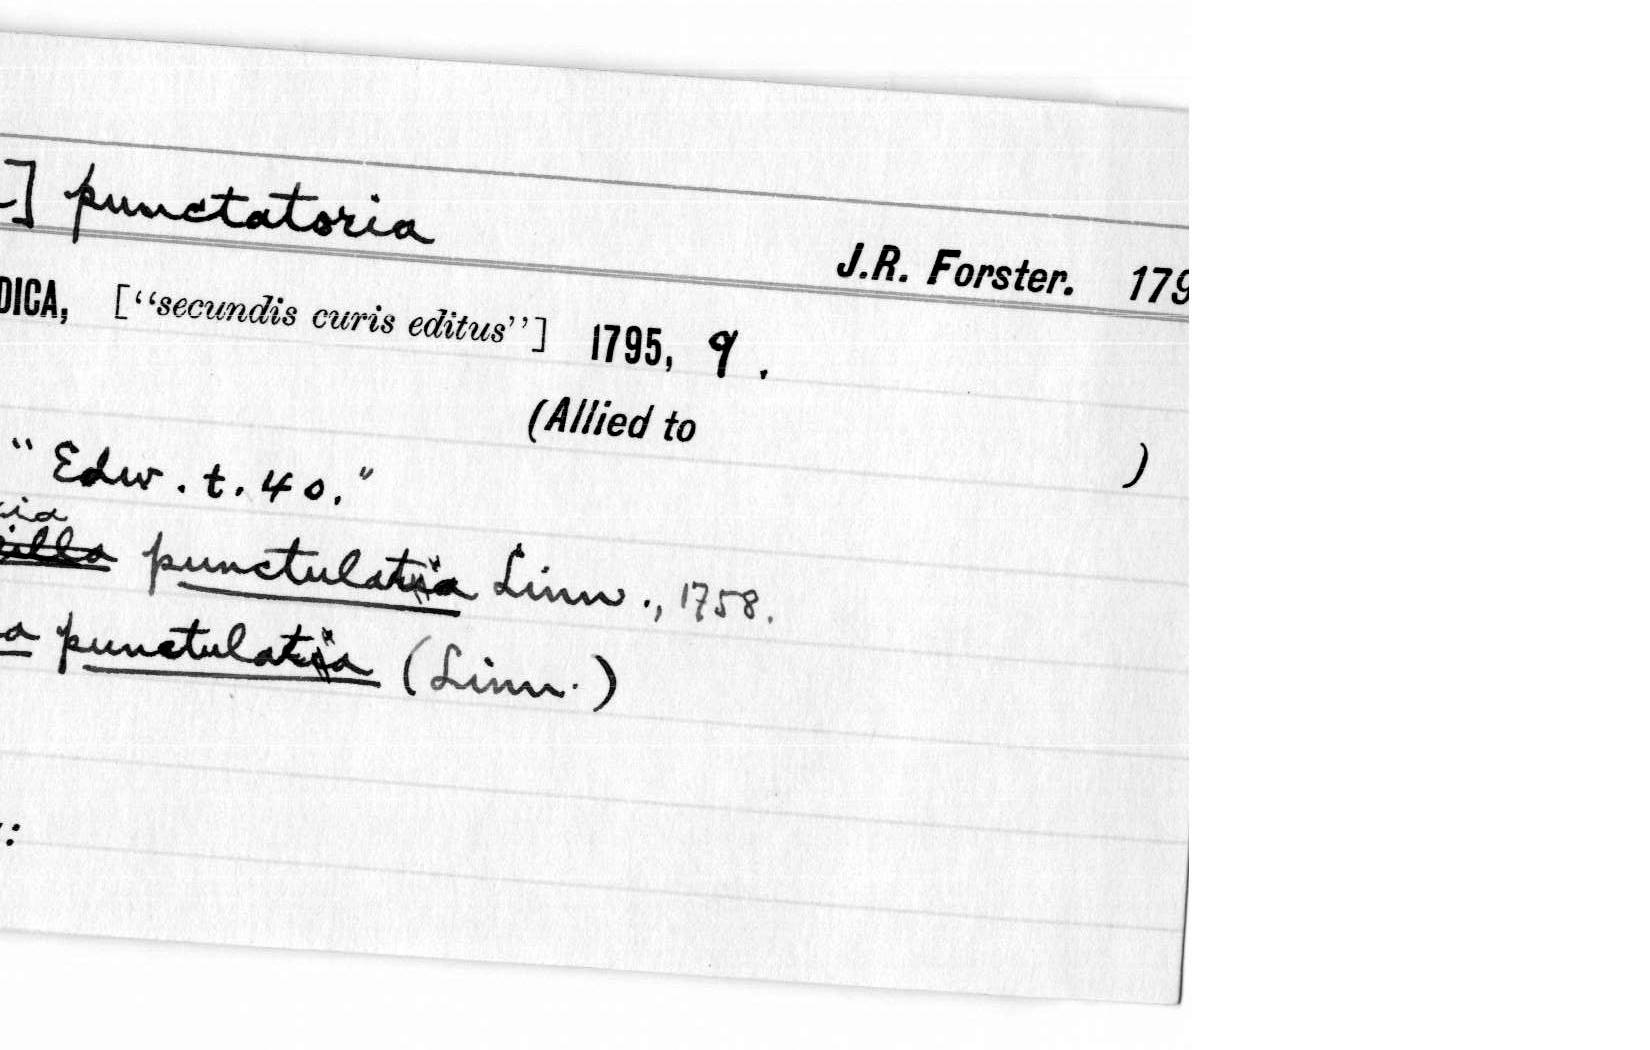 ] punctatoria
J.R. Forster. 179
DICA, [“secundis curis editus”] 1795, 9.
(Allied to )
“Edw. t. 40.”
punctulata Linn., 1758.
a punctulata (Linn.)
: